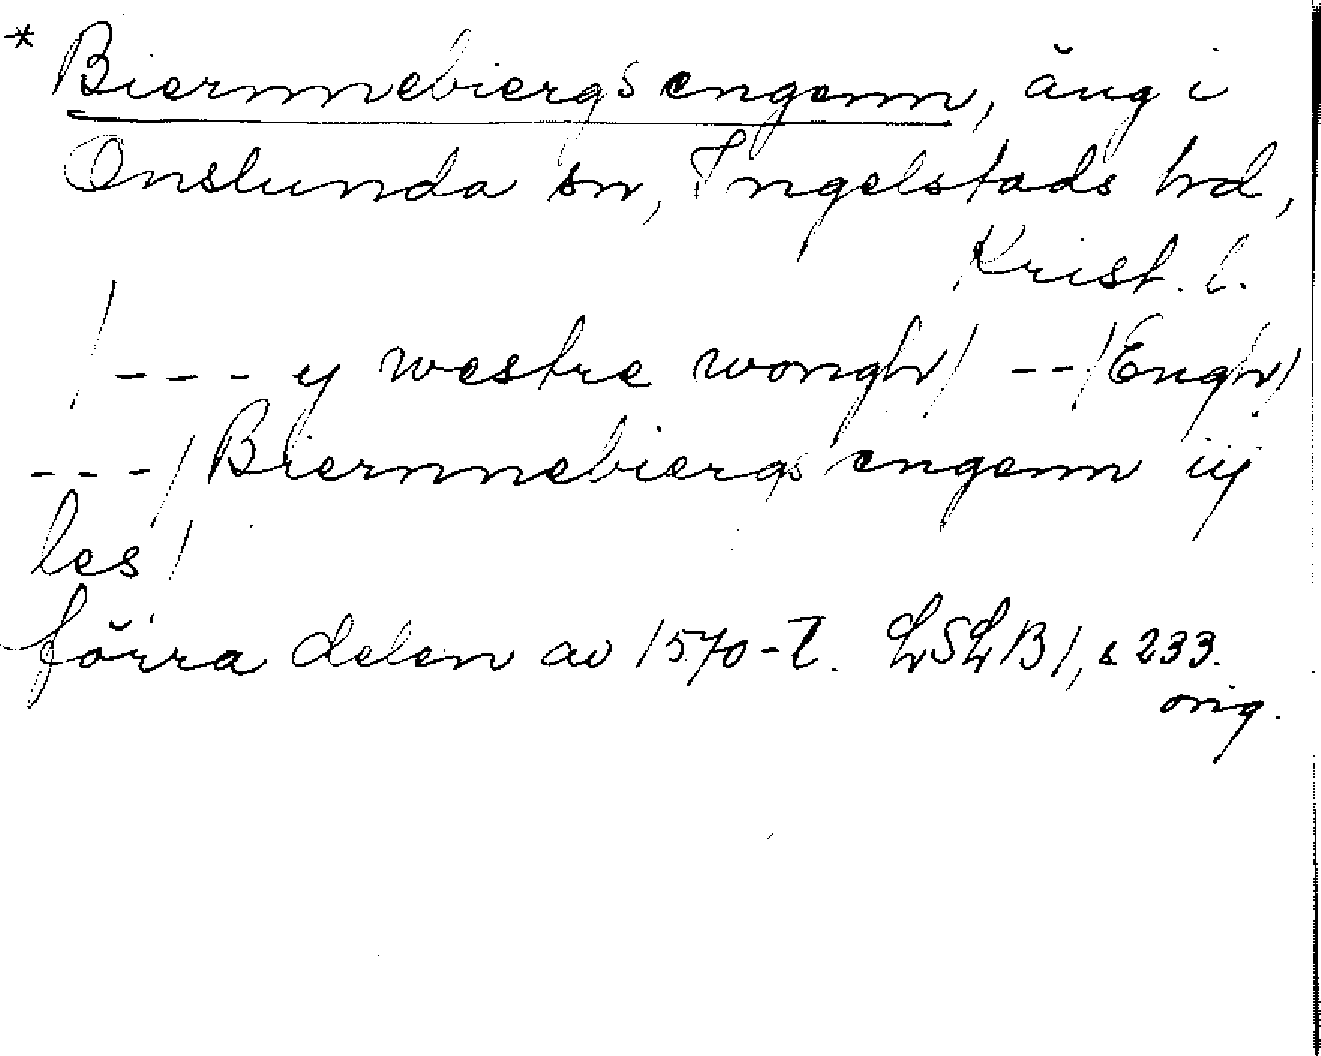 * Biernnebiergs engenn, äng i
Onslunda sn, Ingelstads hd,
Krist. l.
/--- y westre wongh/ --/Engh/
---/ Biernnebiergs engenn iij
les/
förra delen av 1570-t. LSLB1, s 233.
orig.